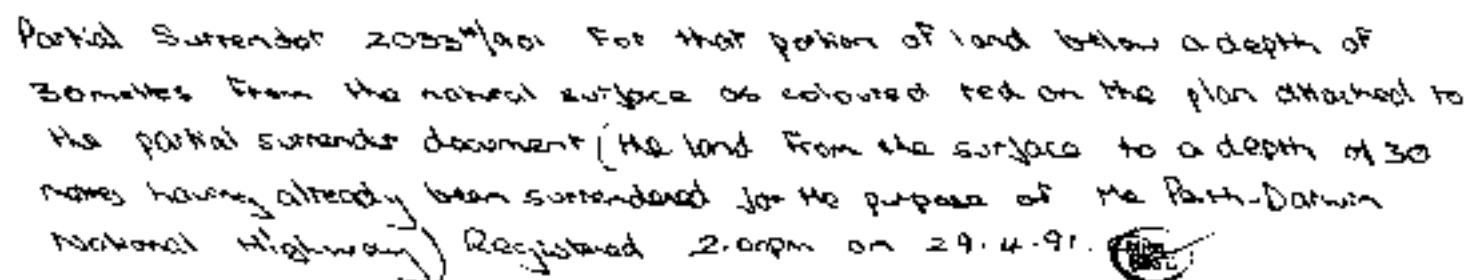 Partial Surrender 2033H/901 For that portion of land below a depth of
30 metres From the natural surface as coloured red on the plan attached to
the partial surrender document (the land From the surface to a depth of 30
metres having already been surrendered for the purpose of the Perth-Darwin
National Highway) Registered 2.00pm on 29.4.91.